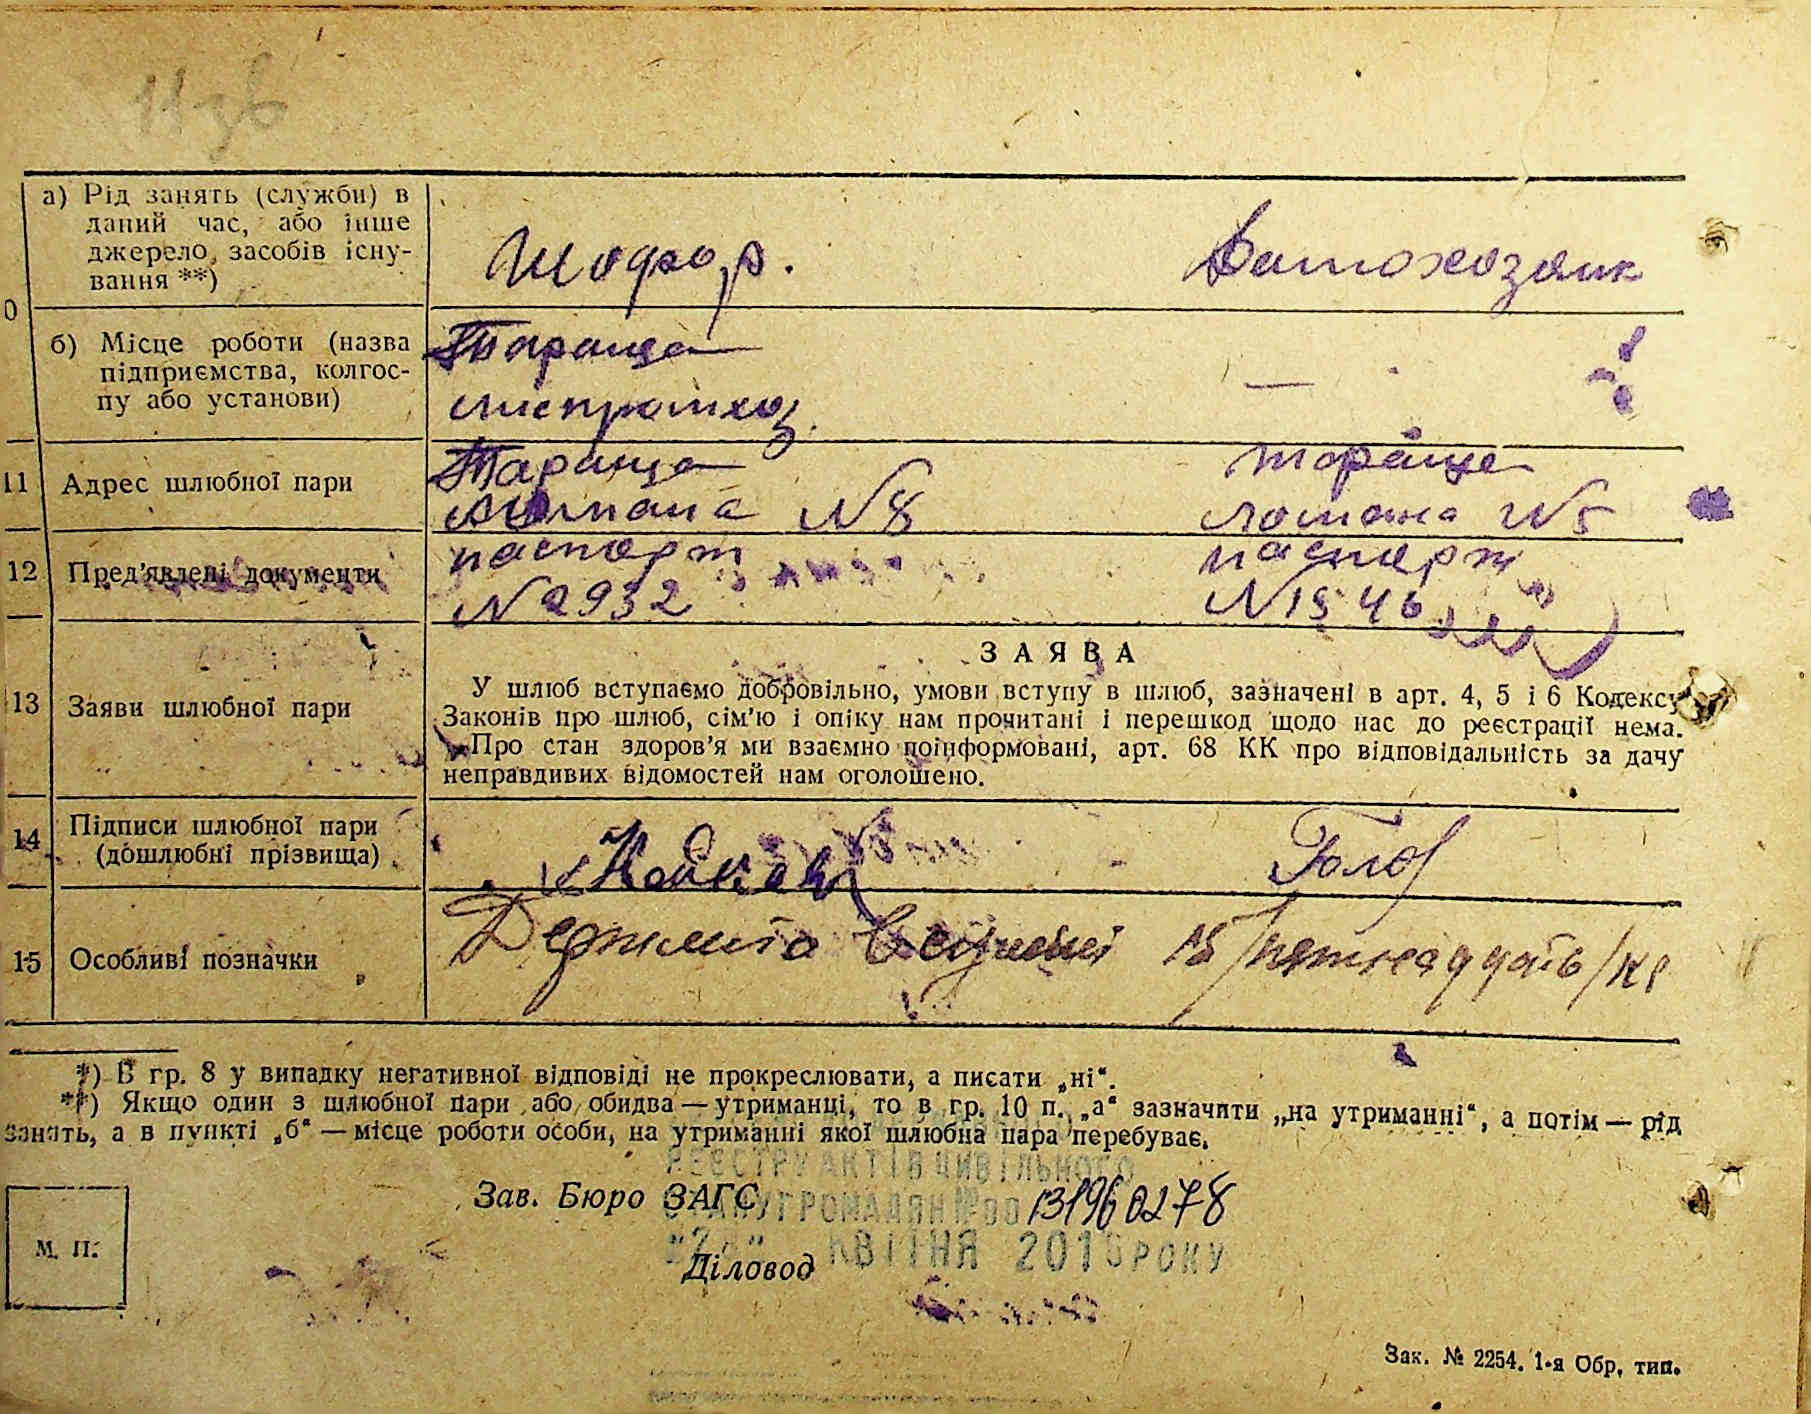 а) Рід занять (служби) в
даний час, або інше
джерело засобів існу-
вання **)
Шофор.
Домохозяик
0
б) Місце роботи (назва
підприємства, колгос-
пу або установи)
Тараща
—
11 Адрес шлюбної пари
Тараща
№ 8
Тараща
№ 5
12 Пред'явлені документи
паспорт
№ 2932
паспорт
№ 1546
13 Заяви шлюбної пари
ЗАЯВА
У шлюб вступаємо добровільно, умови вступу в шлюб, зазначені в арт. 4, 5 і 6 Кодексу
Законів про шлюб, сім'ю і опіку нам прочитані і перешкод щодо нас до реєстрації нема.
Про стан здоров'я ми взаємно поінформовані, арт. 68 КК про відповідальність за дачу
неправдивих відомостей нам оголошено.
14 Підписи шлюбної пари
(дошлюбні прізвища)
15 Особливі позначки
Держмито 15 /пятнадцать/ кр
*) В гр. 8 у випадку негативної відповіді не прокреслювати, а писати „ні“.
**) Якщо один з шлюбної пари або обидва — утриманці, то в гр. 10 п. „а“ зазначити „на утриманні“, а потім — рід
занять, а в пункті „б“ — місце роботи особи, на утриманні якої шлюбна пара перебуває.
РЕЄСТРУ АКТІВ ЦИВІЛЬНОГО
Зав. Бюро ЗАГС
ГРОМАДЯН № 00131960278
КВІТНЯ РОКУ
Діловод
М. П.
Зак. № 2254. 1-я Обр. тип.